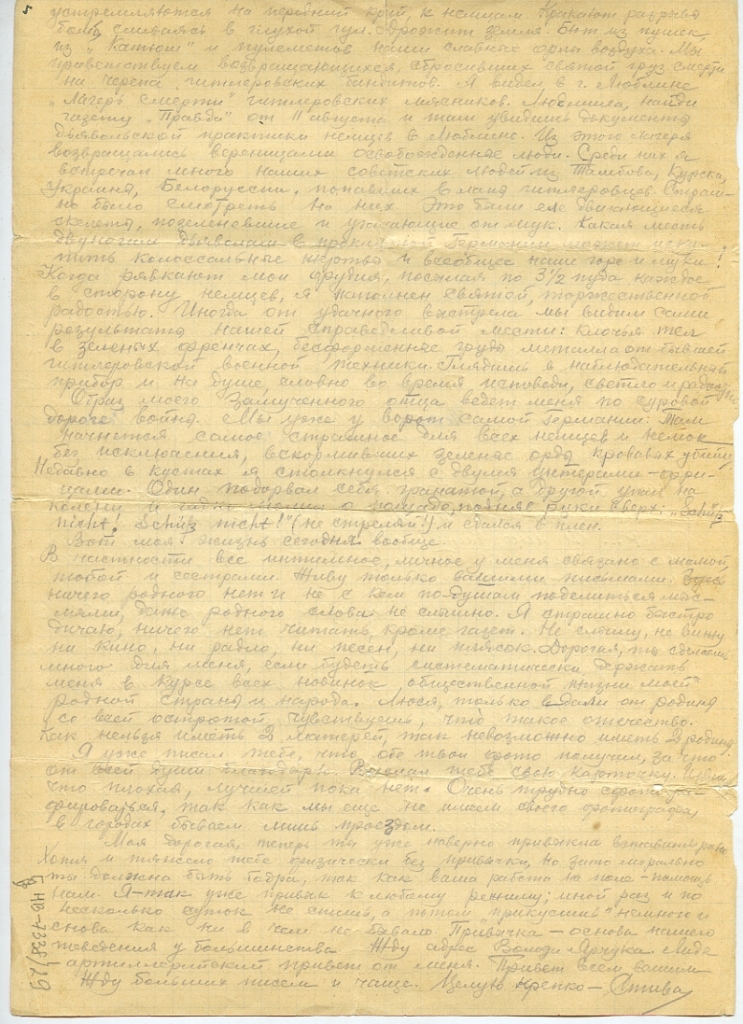 устремляются на передний край, к немцам. Крякают разрывы
бомб, сливаясь в глухой гул. Дрожит земля. Бьют из пушек,
из "Катюш" и пулеметов наши славные орлы воздуха. Мы
приветствуем возвращающихся, сбросивших святой груз смерти
на черепа гитлеровских бандитов. Я видел в г. Люблине
"Лагерь смерти" гитлеровских мясников. Людмила, найди
газету "Правда" от 11 августа и там увидишь документы
дьявольской практики немцев в Люблине. Из этого лагеря
возвращались вереницами освобожденные люди. Среди них я
встречал много наших советских людей из Тамбова, Курска,
Украины, Белоруссии, попавших в лапы гитлеровцев. Страш-
но было смотреть на них. Это были еле двигающиеся
скелеты, позеленевшие и угасающие от мук. Какая месть
двуногим дьяволам в проклятой Германии может иску-
пить колоссальные жертвы и всеобщее наше горе и муки!
Когда рявкают мои орудия, посылая по 3 1/2 пуда каждое
в сторону немцев, я наполнен святой, торжественной
радостью. Иногда от удачного выстрела мы видим сами
результаты нашей справедливой мести: клочья тел
в зеленых френчах, бесформенные груды металла от бывшей
гитлеровской военной техники. Глядишь в наблюдательный
прибор и на душе, словно во время исповеди, светло и радостно
Образ моего замученного отца ведет меня по суровой
дороге войны. Мы уже у ворот самой Германии. Там
начнется самое страшное для всех немцев и немок
без исключения, вскормивших зеленые орды кровавых убийц
Недавно в кустах я столкнулся с двумя унтерами - офи-
церами. Один подорвал себя гранатой, а другой упал на
колени и о пощаде, подняв руки сверх: "Schieß
nicht! Schieß nicht!" (не стреляй!) и сдался в плен.
Вот моя жизнь сегодня вообще.
В частности все интимное, личное у меня связано с мамой,
тобой и сестрами. Живу только вашими письмами. Здесь
ничего родного нет и не с кем по душам поделиться мыс-
лями, даже родного слова не слышно. Я страшно быстро
дичаю, ничего нет читать, кроме газет. Не слышу, не вижу
ни кино, ни радио, ни песен, ни плясок. Дорогая, ты сделаешь
много для меня, если будешь систематически держать
меня в курсе всех новинок общественной жизни моей
родной страны и народа. Люся, только вдали от родины
со всей остротой чувствуешь, что такое отечество.
Как нельзя иметь 2 матерей, так невозможно иметь 2 родины
Я уже писал тебе, что обе твои фото получил, за что
от всей души благодарю. Высылаю тебе свою карточку.
что плохая, лучшей пока нет. Очень трудно сфотогра-
фироваться, так как мы еще не имеем своего фотографа,
в городах бываем лишь проездом.
Моя дорогая, теперь ты уже наверно привыкла вставать рано
Хотя и тяжело тебе физически без привычки, но зато морально
ты должна быть бодра, так как ваша работа на поле - помощь
нам. Я - так уже привык к любому режиму; иной раз и по
несколько суток не спишь, а потом "прикусишь" немного и
снова как ни в чем не бывало. Привычка - основа нашего
поведения у большинства. Жду адрес Володи Ярчука.
артиллерийский привет от меня. Привет всем вашим
Жду больших писем и чаще. Целую крепко - Стива
НВ-7338/67